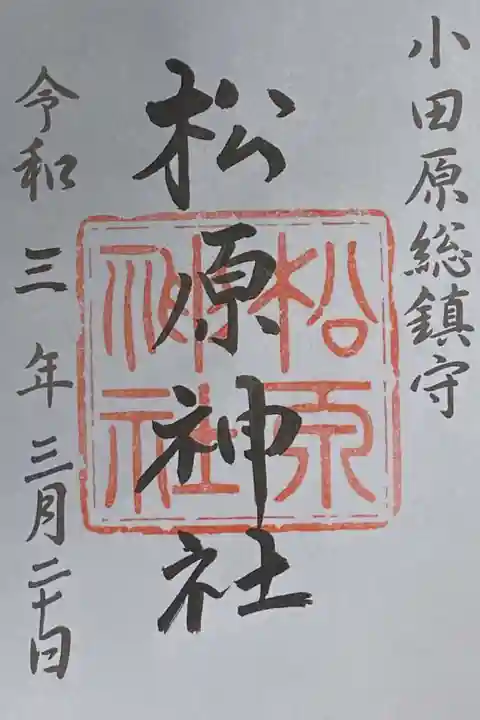 小田原総鎮守
松原神社
松原
神社
令和三年三月二十日